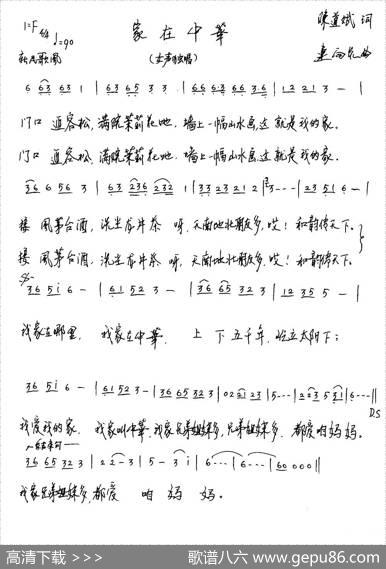 1=F 4/4 ♩=90
家在中華
陈道斌 词
新民歌風
(女声独唱)
孟向兄曲
6 63 63 1 | 63 65 3 3 | 66 63 66 36 | 12 21 3 - |
门口 迎客松,满院茉莉花地.墙上一幅山水画这就是我的家。
门口 迎客松,满院茉莉花地.墙上一幅山水画这就是我的家。
36 6 56 3 | 63 236 232 1 | 33 23 21 2 | 3 - - - | 23 51 6 - |
接 風茅台酒,洗尘龙井茶 呀,天南地北朋友多,哎!和韵传天下。
接 風茅台酒,洗尘龙井茶 呀,天南地北朋友多,哎!和韵传天下。
36 5 i 6 - | 61 52 3 - | 36 65 32 3 | 12 35 5 - |
我家在哪里, 我家在中華, 上 下 五千年,屹立太阳下;
36 5 i 6 - | 61 52 3 - | 36 65 32 3 | 02 21 23 | 5 - - - | 223 5 31 | 6 - - - ||
D.S
我爱我的家, 我家叫中華,我家兄弟姐妹多,兄弟姐妹多, 都爱咱妈妈。
36 65 32 3 | 2 2 - 3 | 5 - 3 i | 6 - - - | 6 - - - | 60 0 0 0 ||
我家兄弟姐妹多,都爱 咱 妈 妈。
高清下载 >>>
歌谱八六 www.gepu86.com